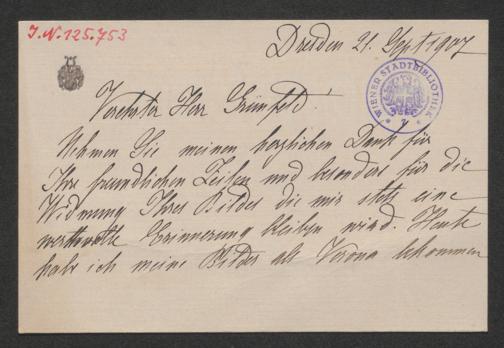 J.N.125.753
Dresden 21. Sept 1907
WIENER STADTBIBLIOTHEK
Verehrter Herr Grünfeld!
Nehmen Sie meinen herzlichen Dank für
Ihre freundlichen Zeilen und besonders für die
Widmung Ihres Bildes die mir stets eine
werthvolle Erinnerung bleiben wird. Heute
habe ich meine Bilder als Verona bekommen